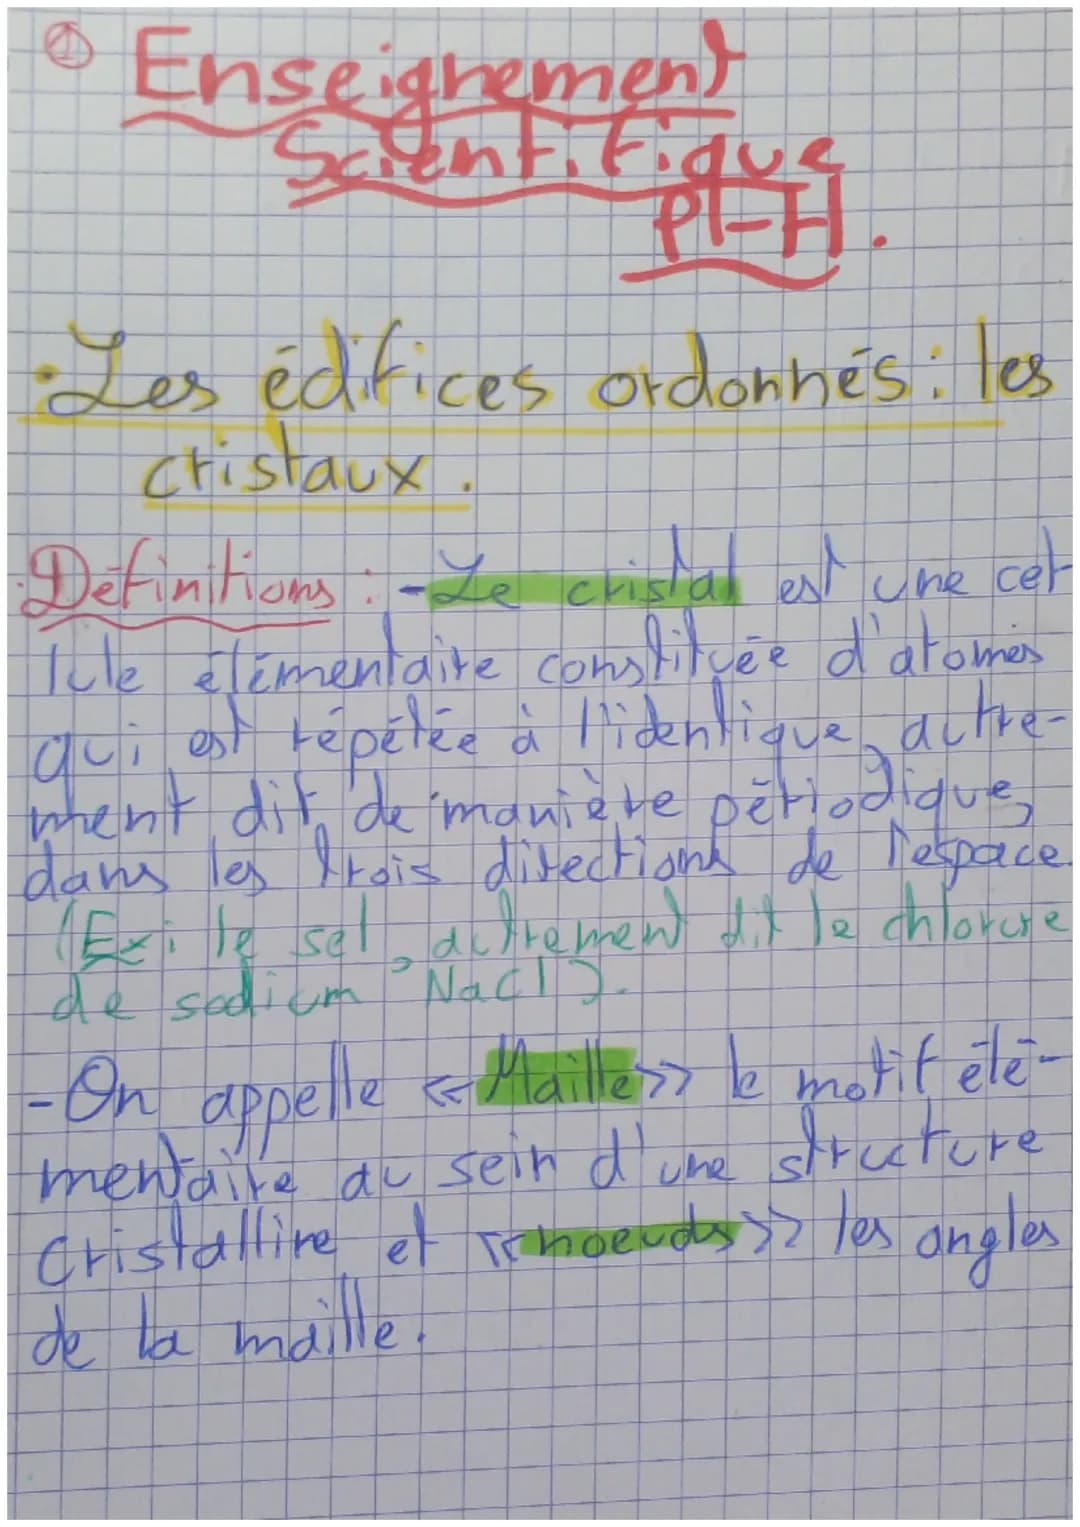 ①
Enseignement
Scientifique
PI-H.
• Les édifices ordonnés : les
cristaux.
• Définitions : - Le cristal est une cel
lule élémentaire constituée d'atomes
qui est répétée à l'identique, autre-
ment dit, de manière périodique,
dans les trois directions de l'espace.
(Ex: le sel, autrement dit le chlorure
de sodium NaCl).
- On appelle «Maille» le motif élé-
mentaire au sein d'une structure
cristalline et «noeuds» les angles
de la maille.